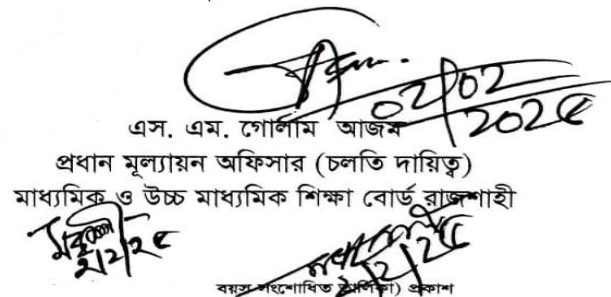 02/02
202৫
এস. এম. গোলাম আজম
প্রধান মূল্যায়ন অফিসার (চলতি দায়িত্ব)
মাধ্যমিক ও উচ্চ মাধ্যমিক শিক্ষা বোর্ড রাজশাহী
২/২/২৫
২/২/২৫
সংশোধিত তালিকা) প্রকাশ